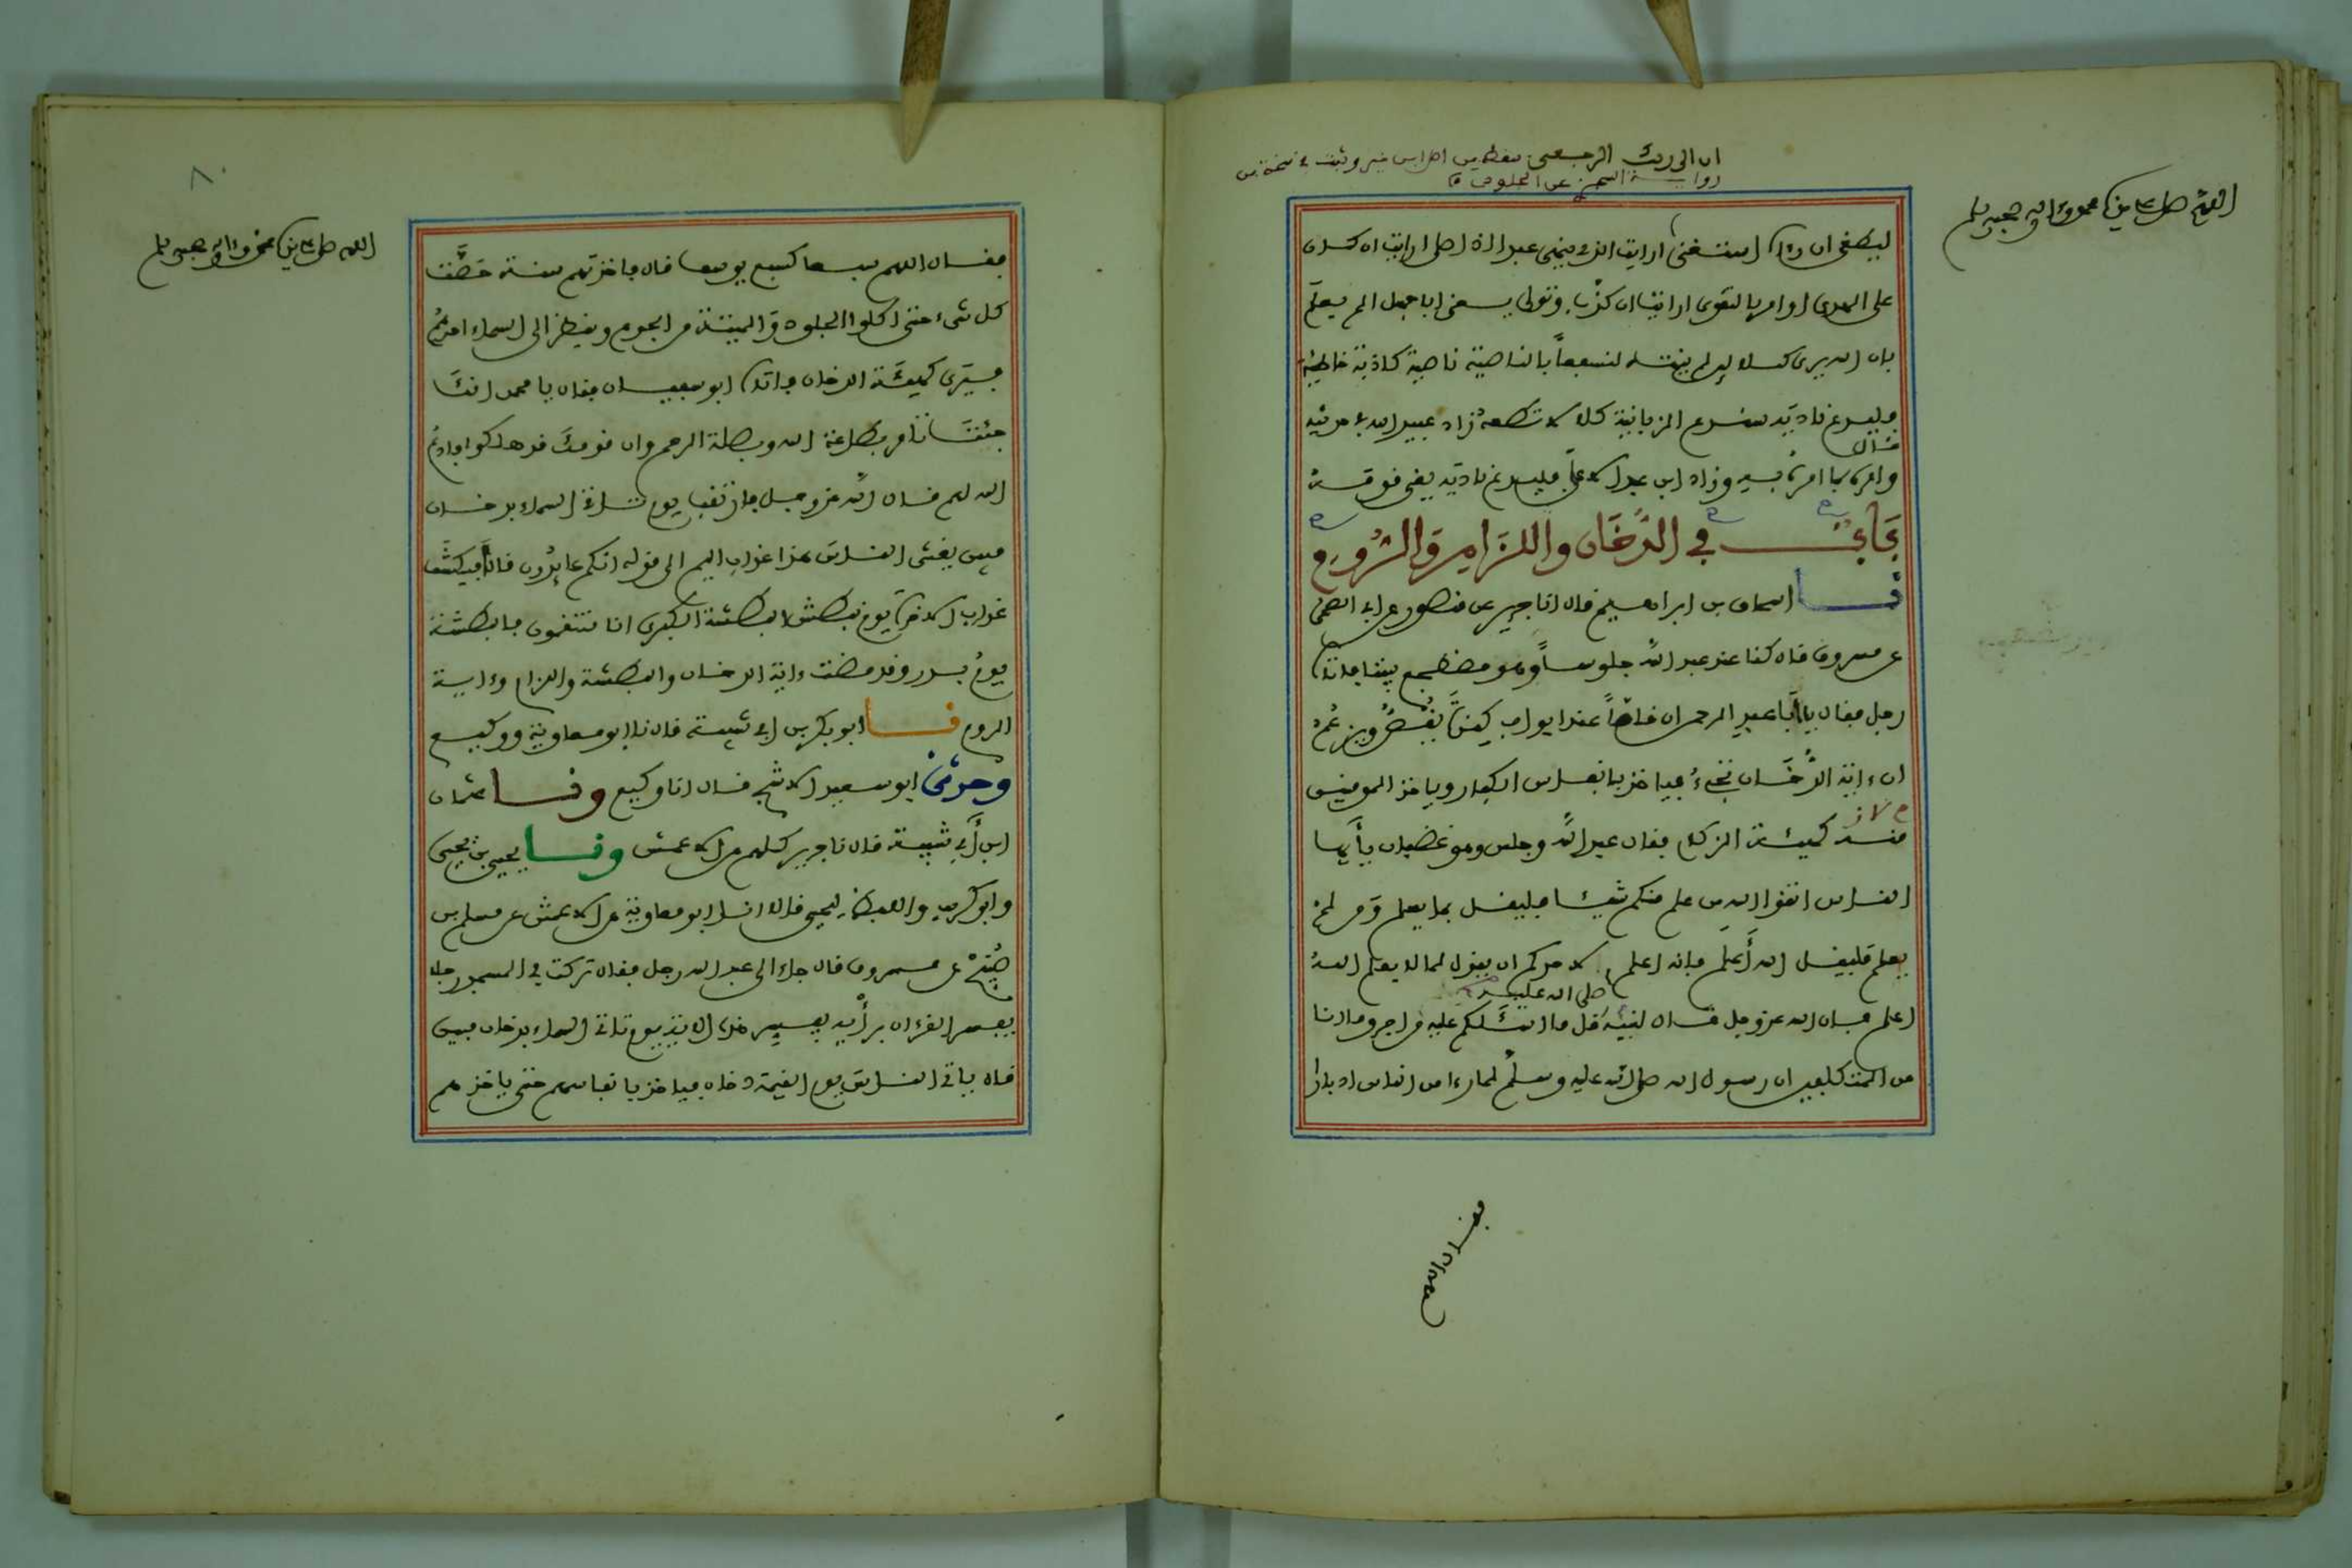 ان الى ربك الرجعى سقط من اصل ابن خير وثبت في نسخة من
رواية السجزي عن الجلودي
اللهم صل على سيدنا محمد وءاله وصحبه وسلم
ليطغى ان رءاه استغنى ارايت الذي ينهى عبدا اذا صلى ارايت ان كان
على الهدى او امر بالتقوى ارايت ان كذّب وتولى يعني ابا جهل الم يعلم
بان الله يرى كلا لين لم ينته لنسفعاً بالناصية ناصية كاذبة خاطية
فليدع ناديه سندع الزبانية كلا لا تطعه زاد عبيد الله في حديثه
قال
وامره بما امره به وزاد ابن عبد الاعلى فليدع ناديه يعني قومه
بَابٌ في الدُّخَان واللِّزَامِ وَالرُّومِ
نا اسحاق بن ابراهيم قال انا جرير عن منصور عن ابي الضحى
عن مسروق قال كنا عند عبد الله جلوساً وهو مضطجع بيننا فاتاه
رجل فقال يا أبا عبد الرحمن ان قاصّاً عند ابواب كندة يَقُصُّ ويزعُمُ
ان ءاية الدُّخَان تجيءُ فياخذ بانفاس الكفار وياخذ المومنين
منه كهيئة الزكام فقال عبد الله وجلس وهو غضبان يأيها
الناس اتقوا الله من علم منكم شيئا فليقل بما يعلم وَمن لم
يعلم فليقل الله أعلم فإنه اعلم لاحدكم ان يقول لما لا يعلم اللهُ
صلى الله عليه
اعلم فان الله عز وجل قال لنبيّه قل ما اسئلكم عليه من اجر وما انا
من المتكلفين ان رسول الله صلى الله عليه وسلم لما رءا من الناس ادبارا
فقال اللهم
٨٠
اللهم صل على سيدنا محمد وءاله وصحبه وسلم
فقال اللهم سبعا كسبع يوسف قال فاخذتهم سنة حَصَّت
كل شيء حتى اكلوا الجلود وَالميتة من الجوع وينظر الى السماء احدهُم
فيَرى كهيئة الدخان فاتاه ابو سفيان فقال يا محمد انك
جئتَ تامر بطاعة الله وبصلة الرحم وان قومك قد هلكوا فادعُ
الله لهم قال الله عز وجل فارتقب يوم تاتي السماء بدخان
مبين يغشى الناسَ هذا عذاب اليم الى قوله انكم عايدُون قال أفيكشَف
عذاب الاخرة يوم نبطش البطشة الكبرى انا منتقمون فالبطشة
يومُ بدر وقد مضت ءاية الدخان والبطشة واللزام وءاية
الروم نا ابو بكر بن ابي شيبة قال نا ابو معاوية ووكيع
وحدثني ابو سعيد الاشج قال انا وكيع ونا عثمان
ابن أبي شيبة قال نا جرير كلهم عن الاعمش ونا يحيى بن يحيى
وابو كريب واللفظ ليحيى قالا انا ابو معاوية عن الاعمش عن مسلم بن
صُبَيْح عن مسروق قال جاء الى عبد الله رجل فقال تركت في المسجد رجلا
يفسر القرءان برأيه يفسر هذه الاية يوم تاتي السماء بدخان مبين
قال ياتي الناسَ يوم القيمة دخان فياخذ بانفاسهم حتى ياخذهم